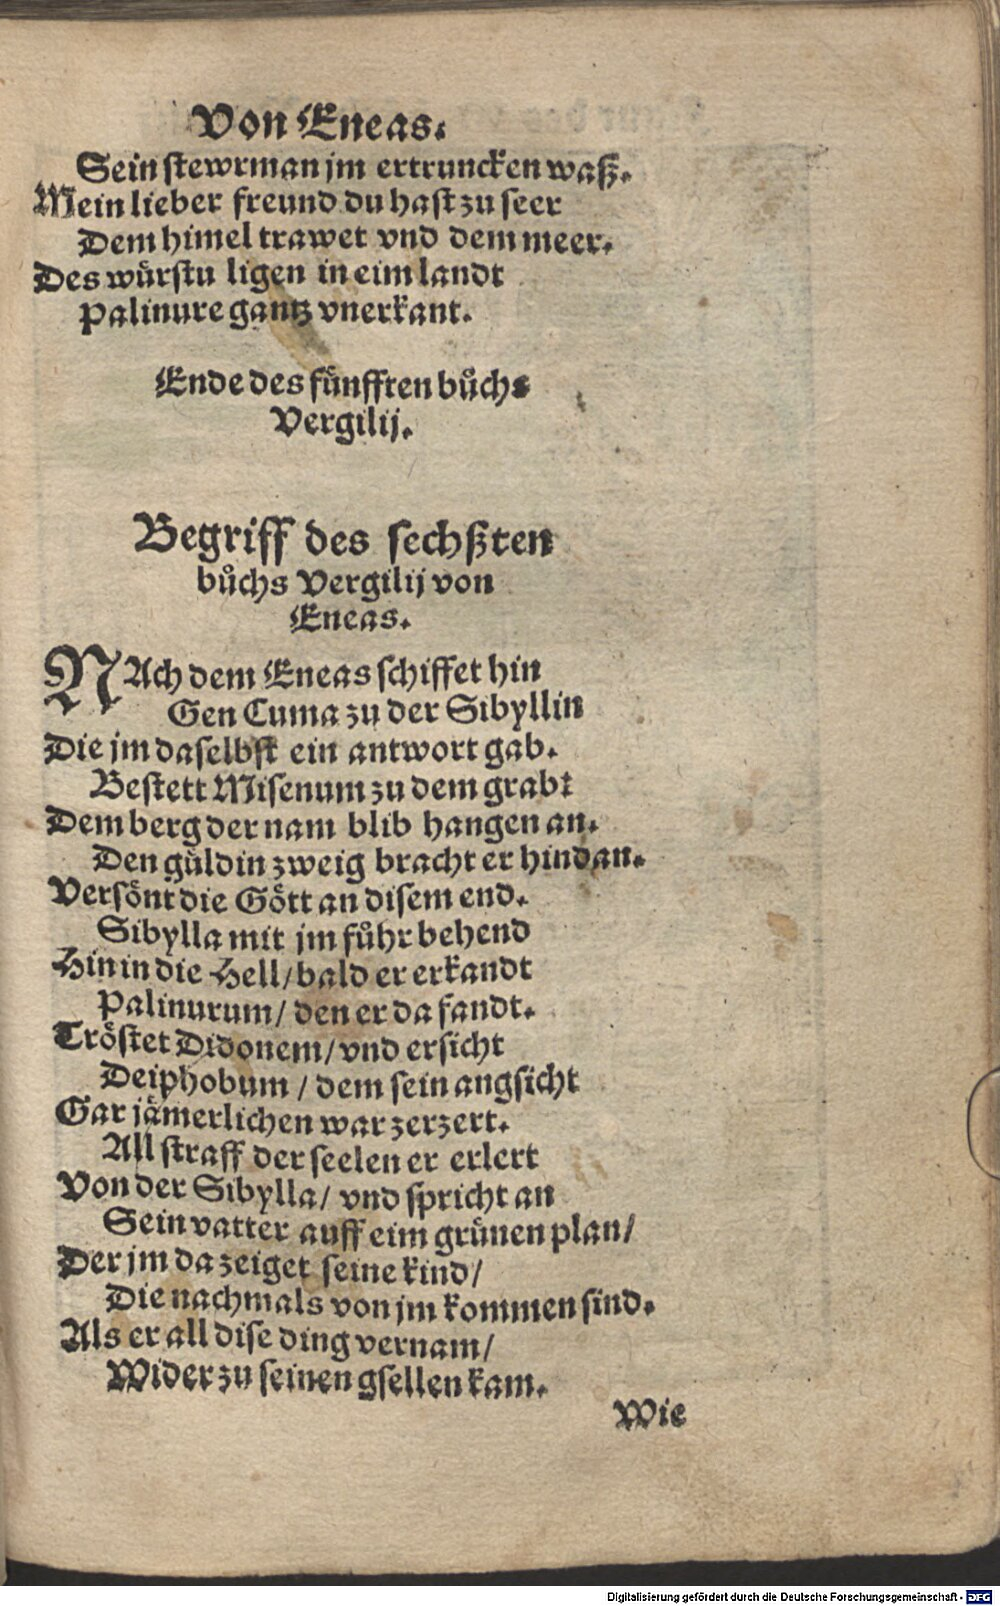 Von Eneas.
Sein stewrman jm ertruncken waß.
Mein lieber freund du hast zu seer
Dem himel trawet vnd dem meer.
Des würstu ligen in eim landt
Palinure gantz vnerkant.
Ende des fünfften bůchs
Vergilij.
Begriff des sechßten
bůchs Vergilij von
Eneas.
NAch dem Eneas schiffet hin
Gen Cuma zu der Sibyllin
Die jm daselbst ein antwort gab.
Bestett Misenum zu dem grab:
Dem berg der nam blib hangen an.
Den güldin zweig bracht er hindan.
Versönt die Gött an disem end.
Sibylla mit jm fůhr behend
Hin in die Hell/ bald er erkandt
Palinurum/ den er da fandt.
Tröstet Didonem/ vnd ersicht
Deiphobum / dem sein angsicht
Gar jämerlichen war zerzert.
All straff der seelen er erlert
Von der Sibylla/ vnd spricht an
Sein vatter auff eim grünen plan/
Der jm da zeiget seine kind/
Die nachmals von jm kommen sind.
Als er all dise ding vernam/
Wider zu seinen gsellen kam.
Wie
Digitalisierung gefördert durch die Deutsche Forschungsgemeinschaft - DFG